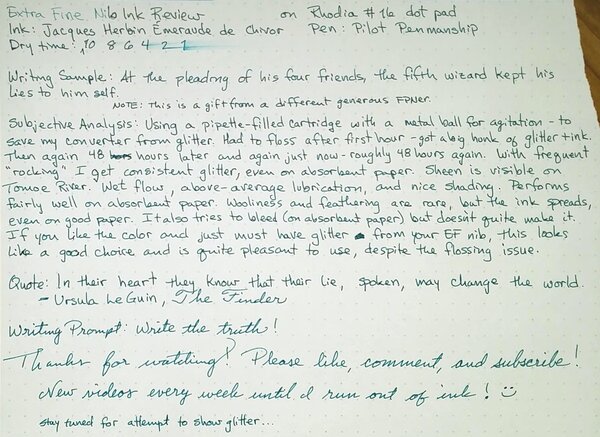 Extra Fine Nib Ink Review on Rhodia #16 dot pad
Ink: Jacques Herbin Émeraude de Chivor Pen: Pilot Penmanship
Dry time: 10 8 6 4 2 1
Writing Sample: At the pleading of his four friends, the fifth wizard kept his
lies to himself.
NOTE: This is a gift from a different generous FPNer.
Subjective Analysis: Using a pipette-filled cartridge with a metal ball for agitation - to
save my converter from glitter. Had to floss after first hour - got a big honk of glitter + ink.
Then again 48 hours later and again just now - roughly 48 hours again. With frequent
"rocking" I get consistent glitter, even on absorbent paper. Sheen is visible on
Tomoe River. Wet flow, above-average lubrication, and nice shading. Performs
fairly well on absorbent paper. Wooliness and feathering are rare, but the ink spreads,
even on good paper. It also tries to bleed (on absorbent paper) but doesn't quite make it.
If you like the color and just must have glitter from your EF nib, this looks
like a good choice and is quite pleasant to use, despite the flossing issue.
Quote: In their heart they know that their lie, spoken, may change the world.
- Ursula LeGuin, The Finder
Writing Prompt: Write the truth!
Thanks for watching! Please like, comment, and subscribe!
New videos every week until I run out of ink! :)
Stay tuned for attempt to show glitter...